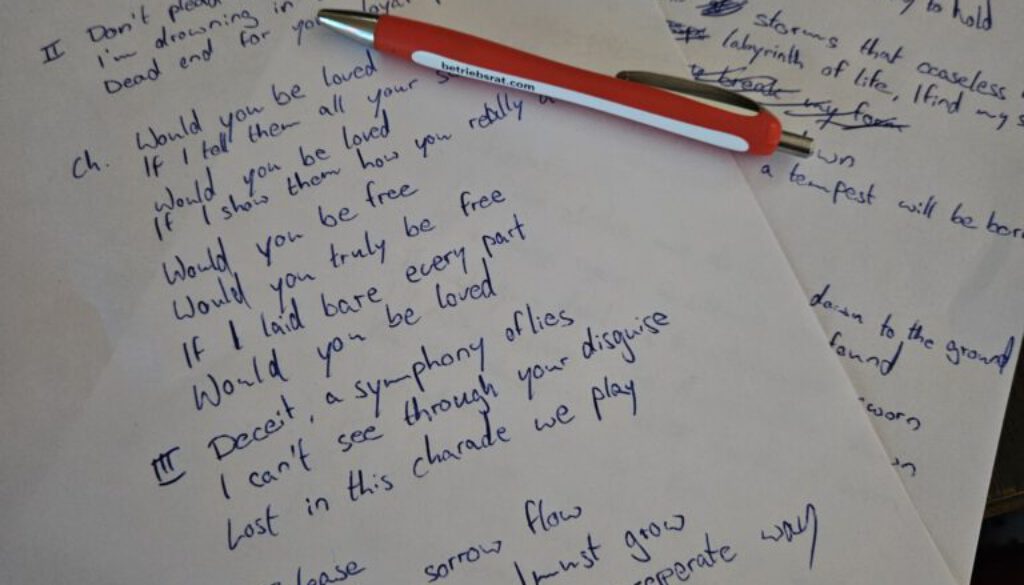 II Don't
I'm drowning in
Dead end for
Ch. Would you be loved
If I tell them all your
Would you be loved
If I show them how you really
Would you be free
Would you truly be free
If I laid bare every part
Would you be loved
III Deceit, a symphony of lies
I can't see through your disguise
Lost in this charade we play
sorrow flow
must grow
way
betriebsrat.com
to hold
storms that
labyrinth of life, I find my
break my form
own
a tempest will be
down to the ground
found
sworn